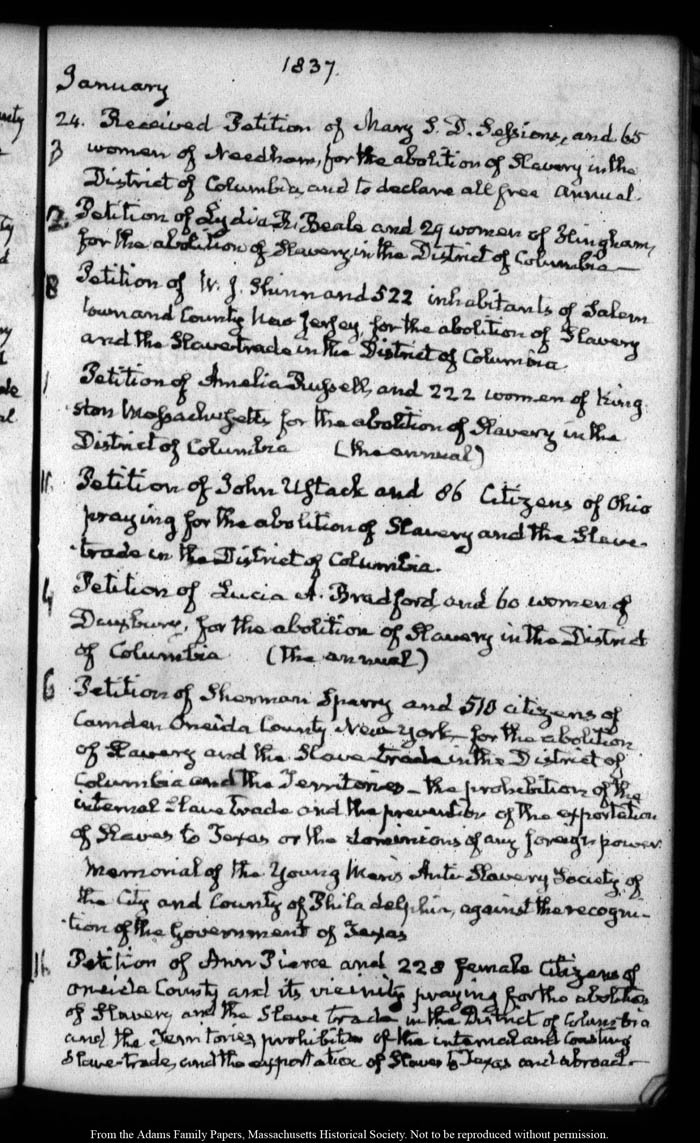 1837.
January
24. Received Petition of Mary S. D. Sessions, and 65
3 women of Needham, for the abolition of Slavery in the
District of Columbia, and to declare all free annual.
2. Petition of Lydia R. Beale and 29 women of Hingham,
for the abolition of Slavery in the District of Columbia—
8 Petition of W. J. Shinn and 522 inhabitants of Salem
town and County New Jersey, for the abolition of Slavery
and the Slave trade in the District of Columbia
1 Petition of Amelia Russell, and 222 women of King-
ston Massachusetts for the abolition of Slavery in the
District of Columbia (the annual)
11. Petition of John and 86 Citizens of Ohio
praying for the abolition of Slavery and the Slave-
trade in the District of Columbia.
4 Petition of Lucia A. Bradford, and 60 women of
Duxbury, for the abolition of Slavery in the District
of Columbia (the annual)
6 Petition of Sherman Sperry and 510 citizens of
Camden Oneida County New York for the abolition
of Slavery and the Slave-trade in the District of
Columbia and the Territories—the prohibition of the
internal Slave trade and the prevention of the exportation
of Slaves to Texas or the dominions of any foreign power.
Memorial of the Young Men's Anti-Slavery Society of
the City and County of Philadelphia, against the recogni-
tion of the Government of Texas
16. Petition of Ann Pierce and 228 female Citizens of
Oneida County and its vicinity praying for the abolition
of Slavery and the Slave trade in the District of Columbia
and the Territories, prohibition of the internal and Coasting
Slave-trade, and the exportation of Slaves to Texas and abroad.—
From the Adams Family Papers, Massachusetts Historical Society. Not to be reproduced without permission.